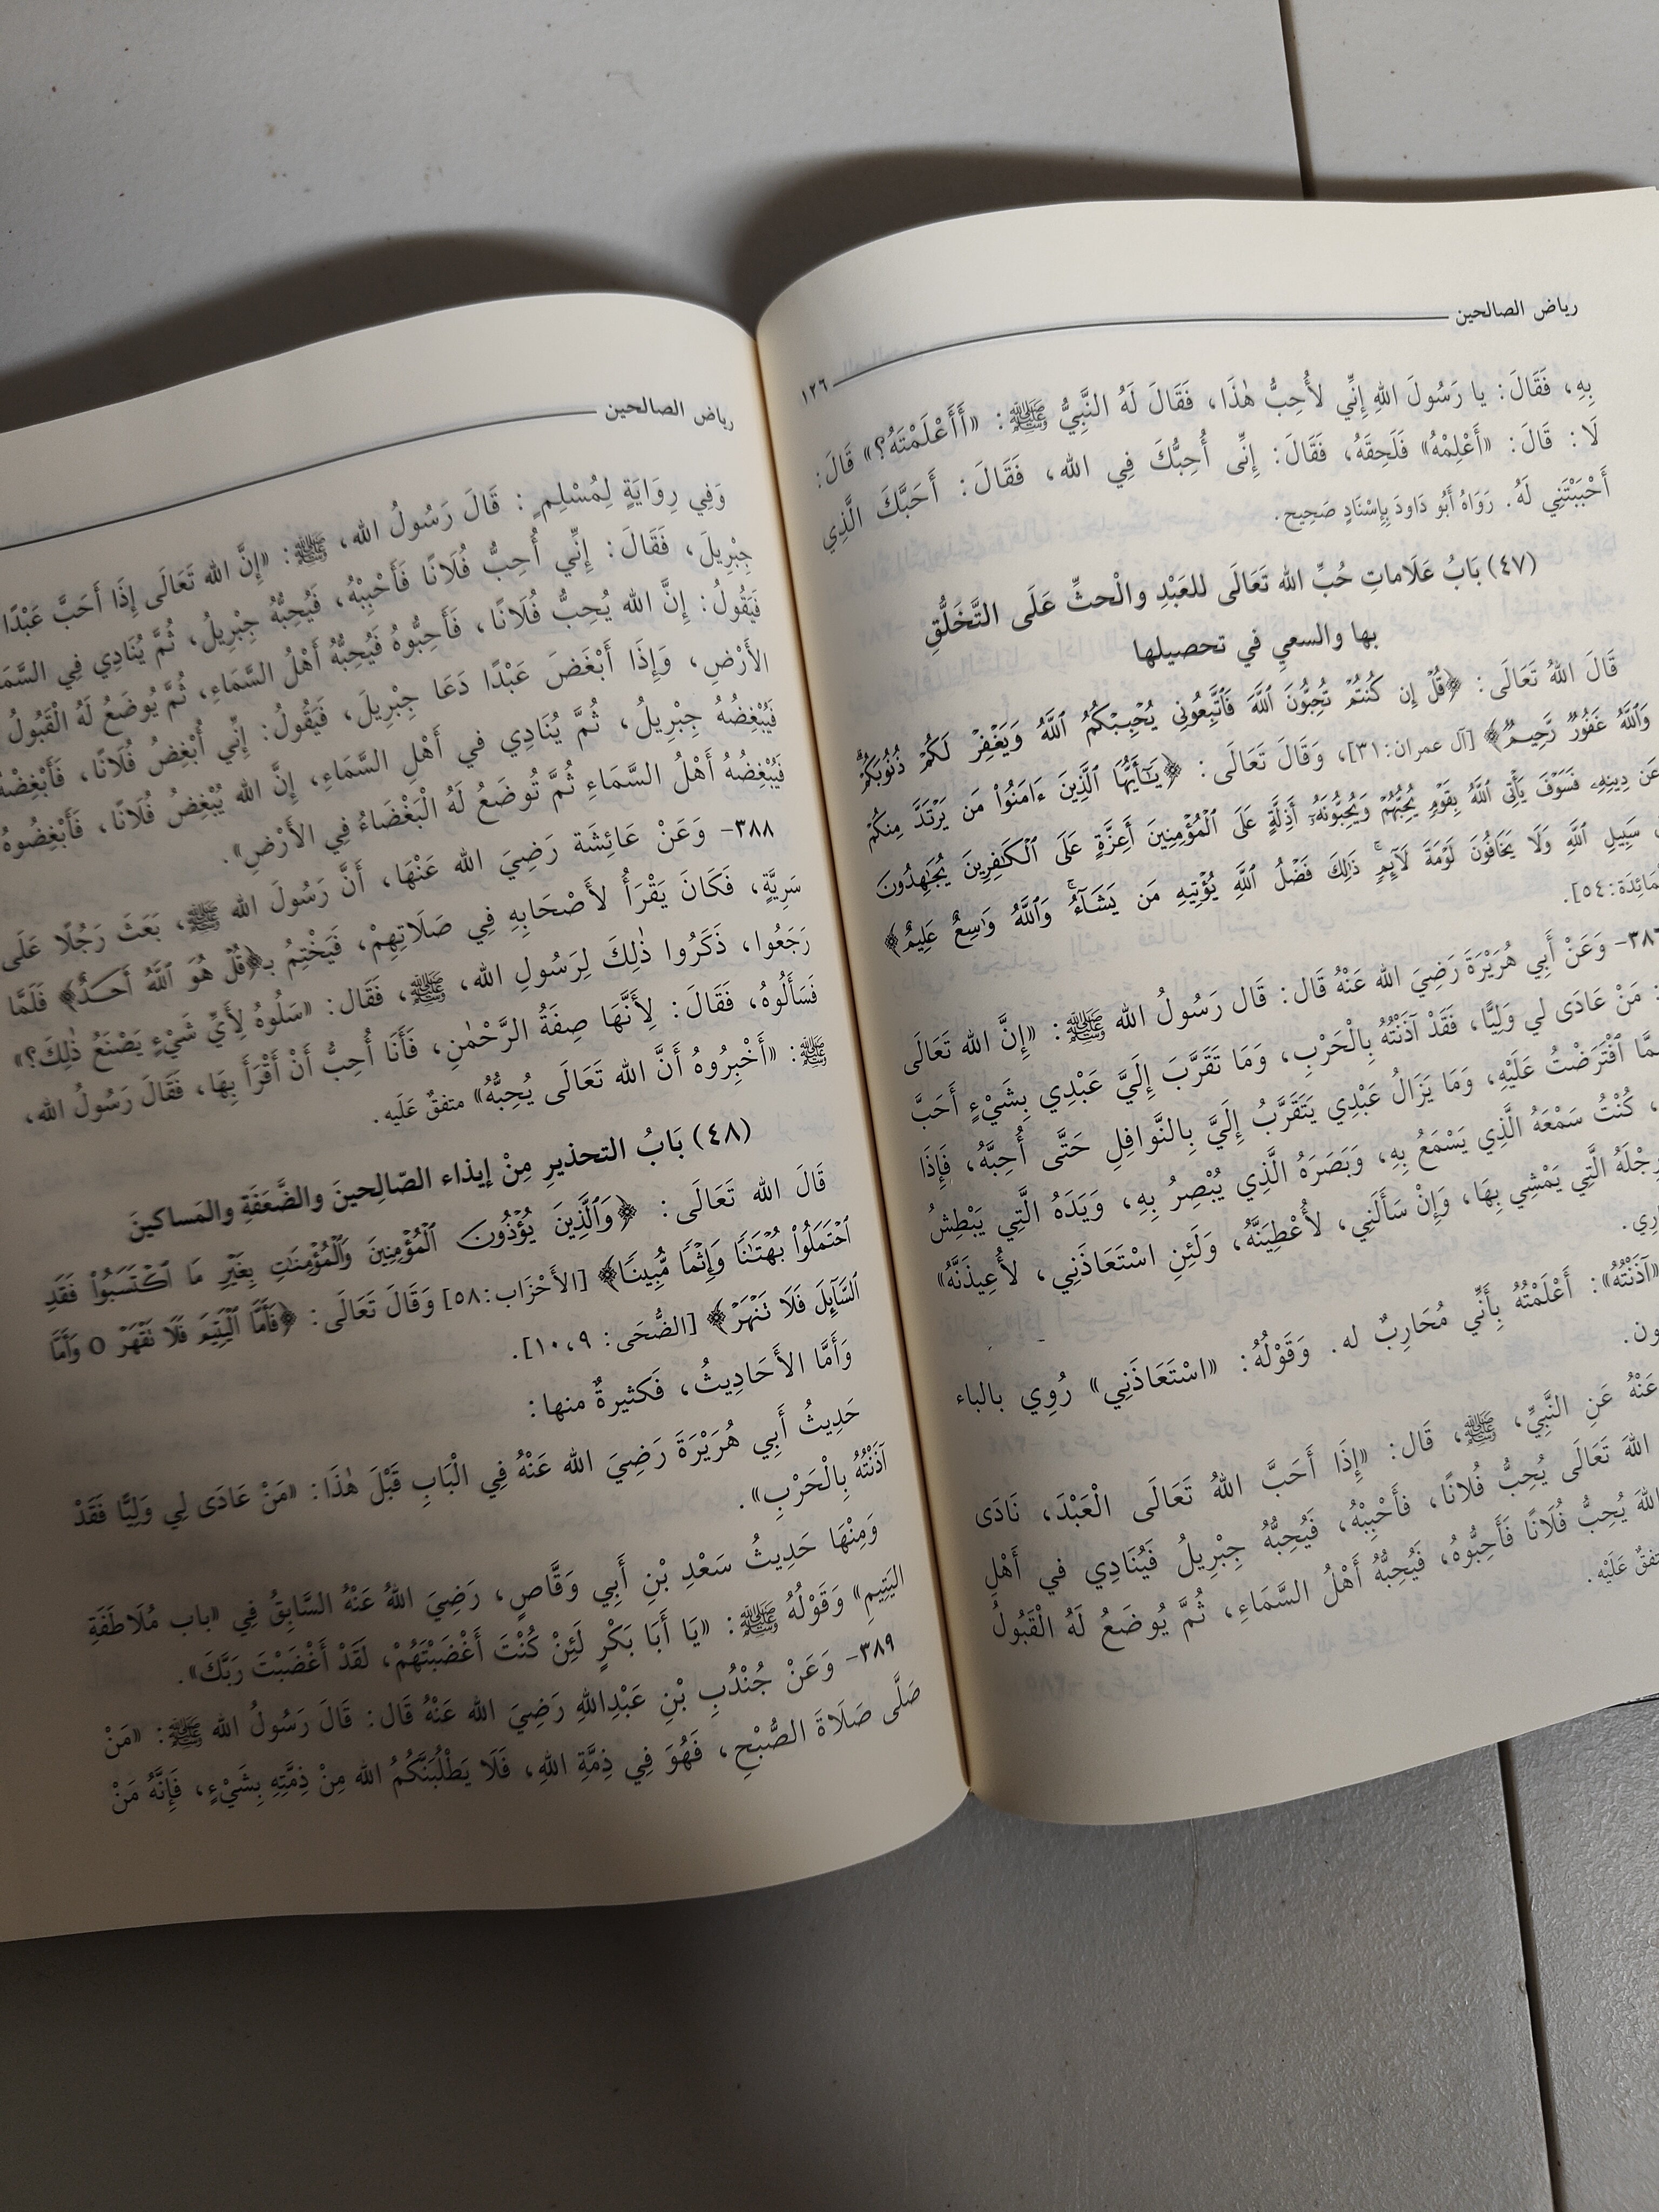 رياض الصالحين
١٢٦
بِهِ، فَقَالَ: يا رَسُولَ اللهِ إِنِّي لأُحِبُّ هٰذَا، فَقَالَ لَهُ النَّبِيُّ ﷺ: «أَأَعْلَمْتَهُ؟» قَالَ:
لَا: قَالَ: «أَعْلِمْهُ» فَلَحِقَهُ، فَقَالَ: إِنِّى أُحِبُّكَ فِي الله، فَقَالَ: أَحَبَّكَ الَّذِي
أَحْبَبْتَنِي لَهُ. رَوَاهُ أَبُو دَاودَ بِإِسْنَادٍ صَحِيح.
(٤٧) بَابُ عَلَاماتِ حُبِّ الله تَعَالَى للعَبْدِ والْحثِّ عَلَى التَّخَلُّقِ
بها والسعيِ في تحصيلها
قَالَ اللهُ تَعَالَى: ﴿قُلْ إِن كُنتُمْ تُحِبُّونَ ٱللَّهَ فَٱتَّبِعُونِي يُحْبِبْكُمُ ٱللَّهُ وَيَغْفِرْ لَكُمْ ذُنُوبَكُمْ
وَٱللَّهُ غَفُورٌ رَّحِيمٌ﴾ [آل عمران:٣١]، وَقَالَ تَعَالَى: ﴿يَٰٓأَيُّهَا ٱلَّذِينَ ءَامَنُوا۟ مَن يَرْتَدَّ مِنكُمْ
عَن دِينِهِۦ فَسَوْفَ يَأْتِى ٱللَّهُ بِقَوْمٍ يُحِبُّهُمْ وَيُحِبُّونَهُۥٓ أَذِلَّةٍ عَلَى ٱلْمُؤْمِنِينَ أَعِزَّةٍ عَلَى ٱلْكَٰفِرِينَ يُجَٰهِدُونَ
سَبِيلِ ٱللَّهِ وَلَا يَخَافُونَ لَوْمَةَ لَآئِمٍ ذَٰلِكَ فَضْلُ ٱللَّهِ يُؤْتِيهِ مَن يَشَآءُ وَٱللَّهُ وَٰسِعٌ عَلِيمٌ﴾
مَائِدَة:٥٤].
٣٨٦- وَعَنْ أَبِي هُرَيْرَةَ رَضِيَ الله عَنْهُ قَالَ: قَالَ رَسُولُ الله ﷺ: «إِنَّ الله تَعَالَى
: مَنْ عَادَى لي وَلِيًّا، فَقَدْ آذَنْتُهُ بِالْحَرْبِ، وَمَا تَقَرَّبَ إِلَيَّ عَبْدِي بِشَيْءٍ أَحَبَّ
مَّا افْتَرَضْتُ عَلَيْهِ، وَمَا يَزَالُ عَبْدِي يَتَقَرَّبُ إِلَيَّ بِالنَّوَافِلِ حَتَّى أُحِبَّهُ، فَإِذَا
، كُنْتُ سَمْعَهُ الَّذِي يَسْمَعُ بِهِ، وَبَصَرَهُ الَّذِي يُبْصِرُ بِهِ، وَيَدَهُ الَّتِي يَبْطِشُ
رِجْلَهُ الَّتِي يَمْشِي بِهَا، وَإِنْ سَأَلَنِي، لأُعْطِيَنَّهُ، وَلَئِنِ اسْتَعَاذَنِي، لأُعِيذَنَّهُ»
اري.
«آذَنْتُهُ»: أَعْلَمْتُهُ بِأَنِّي مُحَارِبٌ له. وَقَوْلُهُ: «اسْتَعَاذَنِي» رُوِي بالباء
ون.
عَنْهُ عَنِ النَّبِيِّ، ﷺ، قَال: «إِذَا أَحَبَّ اللهُ تَعَالَى الْعَبْدَ، نَادَى
اللهَ تَعَالَى يُحِبُّ فُلانًا، فأَحْبِبْهُ، فَيُحِبُّهُ جِبْرِيلُ فَيُنَادِي في أَهْلِ
اللهَ يُحِبُّ فُلَانًا فَأَحِبُّوهُ، فَيُحِبُّهُ أَهْلُ السَّمَاءِ، ثُمَّ يُوضَعُ لَهُ الْقَبُولُ
متفقٌ عَلَيْه.
رياض الصالحين
وَفِي رِوَايَةٍ لِمُسْلِمٍ: قَالَ رَسُولُ الله، ﷺ: «إِنَّ الله تَعَالَى إِذَا أَحَبَّ عَبْدًا
جِبْرِيلَ، فَقَالَ: إِنِّي أُحِبُّ فُلَانًا فَأَحْبِبْهُ، فَيُحِبُّهُ جِبْرِيلُ، ثُمَّ يُنَادِي فِي السَّمَا
فَيَقُولُ: إِنَّ الله يُحِبُّ فُلَانًا، فَأَحِبُّوهُ فَيُحِبُّهُ أَهْلُ السَّمَاءِ، ثُمَّ يُوضَعُ لَهُ الْقَبُولُ
الأَرْضِ، وَإِذَا أَبْغَضَ عَبْدًا دَعَا جِبْرِيلَ، فَيَقُولُ: إِنِّي أُبْغِضُ فُلَانًا، فَأَبْغِضْهُ
فَيُبْغِضُهُ جِبْرِيلُ، ثُمَّ يُنَادِي في أَهْلِ السَّمَاءِ، إِنَّ الله يُبْغِضُ فُلَانًا، فَأَبْغِضُوهُ
فَيُبْغِضُهُ أَهْلُ السَّمَاءِ ثُمَّ تُوضَعُ لَهُ الْبَغْضَاءُ فِي الأَرْضِ».
٣٨٨- وَعَنْ عَائِشَة رَضِيَ الله عَنْهَا، أَنَّ رَسُولَ الله ﷺ، بَعَثَ رَجُلًا عَلَى
سَرِيَّةٍ، فَكَانَ يَقْرَأُ لأَصْحَابِهِ فِي صَلَاتِهِمْ، فَيَخْتِمُ بـ﴿قُلْ هُوَ ٱللَّهُ أَحَدٌ﴾ فَلَمَّا
رَجَعُوا، ذَكَرُوا ذٰلِكَ لِرَسُولِ الله، ﷺ، فَقَال: «سَلُوهُ لِأَيِّ شَيْءٍ يَصْنَعُ ذٰلِكَ؟»
فَسَأَلُوهُ، فَقَالَ: لِأَنَّهَا صِفَةُ الرَّحْمٰنِ، فَأَنَا أُحِبُّ أَنْ أَقْرَأَ بِهَا، فَقَالَ رَسُولُ الله،
ﷺ: «أَخْبِرُوهُ أَنَّ الله تَعَالَى يُحِبُّهُ» متفقٌ عَلَيه.
(٤٨) بَابُ التحذيرِ مِنْ إيذاء الصّالِحينَ والضَّعَفَةِ والمَساكينَ
قَالَ الله تَعَالَى: ﴿وَٱلَّذِينَ يُؤْذُونَ ٱلْمُؤْمِنِينَ وَٱلْمُؤْمِنَٰتِ بِغَيْرِ مَا ٱكْتَسَبُوا۟ فَقَدِ
ٱحْتَمَلُوا۟ بُهْتَٰنًا وَإِثْمًا مُّبِينًا﴾ [الأَحْزَاب:٥٨] وَقَالَ تَعَالَى: ﴿فَأَمَّا ٱلْيَتِيمَ فَلَا تَقْهَرْ ○ وَأَمَّا
ٱلسَّآئِلَ فَلَا تَنْهَرْ﴾ [الضُّحَى: ٩،١٠].
وَأَمَّا الأَحَادِيثُ، فَكثيرةٌ منها:
حَدِيثُ أَبِي هُرَيْرَةَ رَضِيَ الله عَنْهُ فِي الْبَابِ قَبْلَ هٰذَا: «مَنْ عَادَى لِي وَلِيًّا فَقَدْ
آذَنْتُهُ بِالْحَرْبِ».
وَمِنْهَا حَدِيثُ سَعْدِ بْنِ أَبِي وَقَّاصٍ، رَضِيَ اللهُ عَنْهُ السَّابِقُ فِي «باب مُلَاطَفَةِ
اليَتِيمِ» وَقَوْلُهُ ﷺ: «يَا أَبَا بَكْرٍ لَئِنْ كُنْتَ أَغْضَبْتَهُمْ، لَقَدْ أَغْضَبْتَ رَبَّكَ».
٣٨٩- وَعَنْ جُنْدُبِ بْنِ عَبْدِاللهِ رَضِيَ الله عَنْهُ قَال: قَالَ رَسُولُ الله ﷺ: «مَنْ
صَلَّى صَلَاةَ الصُّبْحِ، فَهُوَ فِي ذِمَّةِ اللهِ، فَلَا يَطْلُبَنَّكُمُ الله مِنْ ذِمَّتِهِ بِشَيْءٍ، فَإِنَّهُ مَنْ